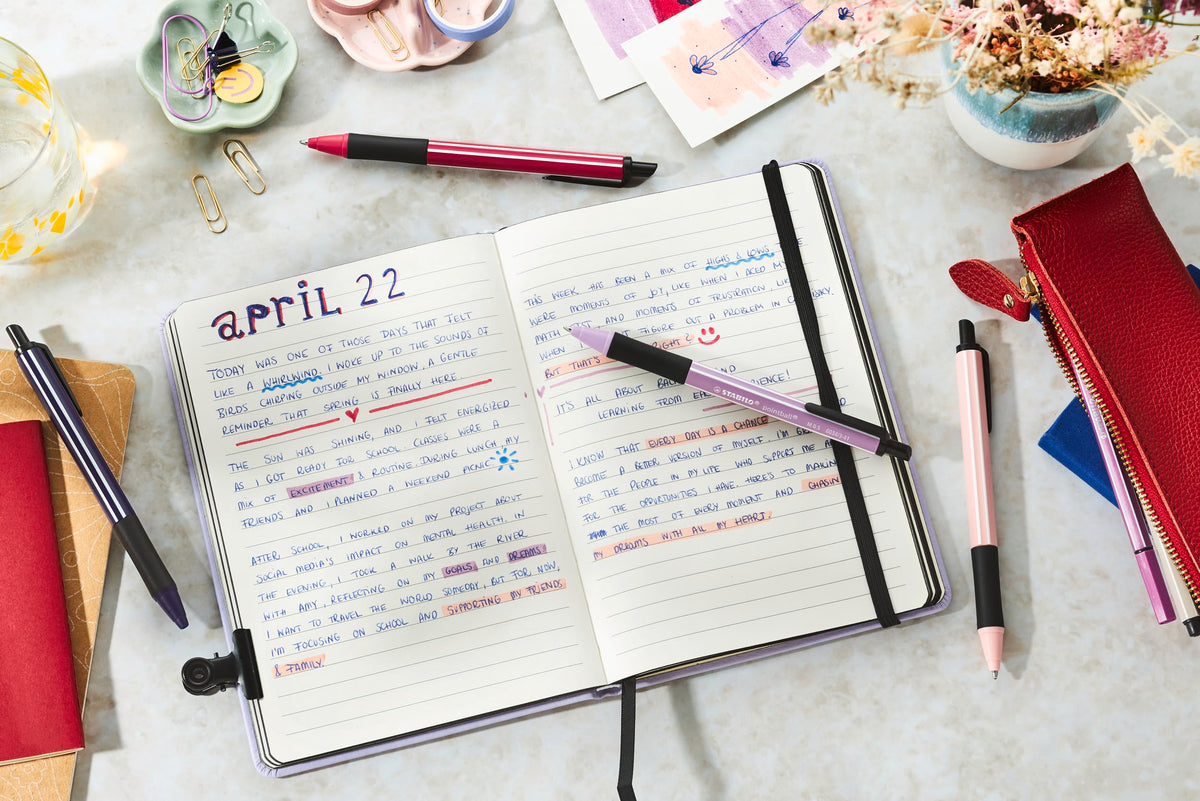 april 22
TODAY WAS ONE OF THOSE DAYS THAT FELT
LIKE A WHIRLWIND. I WOKE UP TO THE SOUNDS OF
BIRDS CHIRPING OUTSIDE MY WINDOW, A GENTLE
REMINDER THAT SPRING IS FINALLY HERE.
THE SUN WAS SHINING, AND I FELT ENERGIZED
AS I GOT READY FOR SCHOOL. CLASSES WERE A
MIX OF EXCITEMENT & ROUTINE. DURING LUNCH, MY
FRIENDS AND I PLANNED A WEEKEND PICNIC.
AFTER SCHOOL, I WORKED ON MY PROJECT ABOUT
SOCIAL MEDIA'S IMPACT ON MENTAL HEALTH. IN
THE EVENING, I TOOK A WALK BY THE RIVER
WITH AMY, REFLECTING ON MY GOALS AND DREAMS.
I WANT TO TRAVEL THE WORLD SOMEDAY, BUT FOR NOW,
I'M FOCUSING ON SCHOOL AND SUPPORTING MY FRIENDS
& FAMILY.
THIS WEEK HAS BEEN A MIX OF HIGHS & LOWS.
WERE MOMENTS OF JOY, LIKE WHEN I ACED M
MATH AND MOMENTS OF FRUSTRATION, LIK
WHEN FIGURE OUT A PROBLEM IN
BUT THAT'S RIGHT?
IT'S ALL ABOUT
LEARNING FROM
I KNOW THAT EVERY DAY IS A CHANCE
BECOME A BETTER VERSION OF MYSELF. I'M
FOR THE PEOPLE IN MY LIFE WHO SUPPORT ME
FOR THE OPPORTUNITIES I HAVE. HERE'S TO MAKIN
THE MOST OF EVERY MOMENT AND CHASIN
MY DREAMS WITH ALL MY HEART.
STABILO pointball